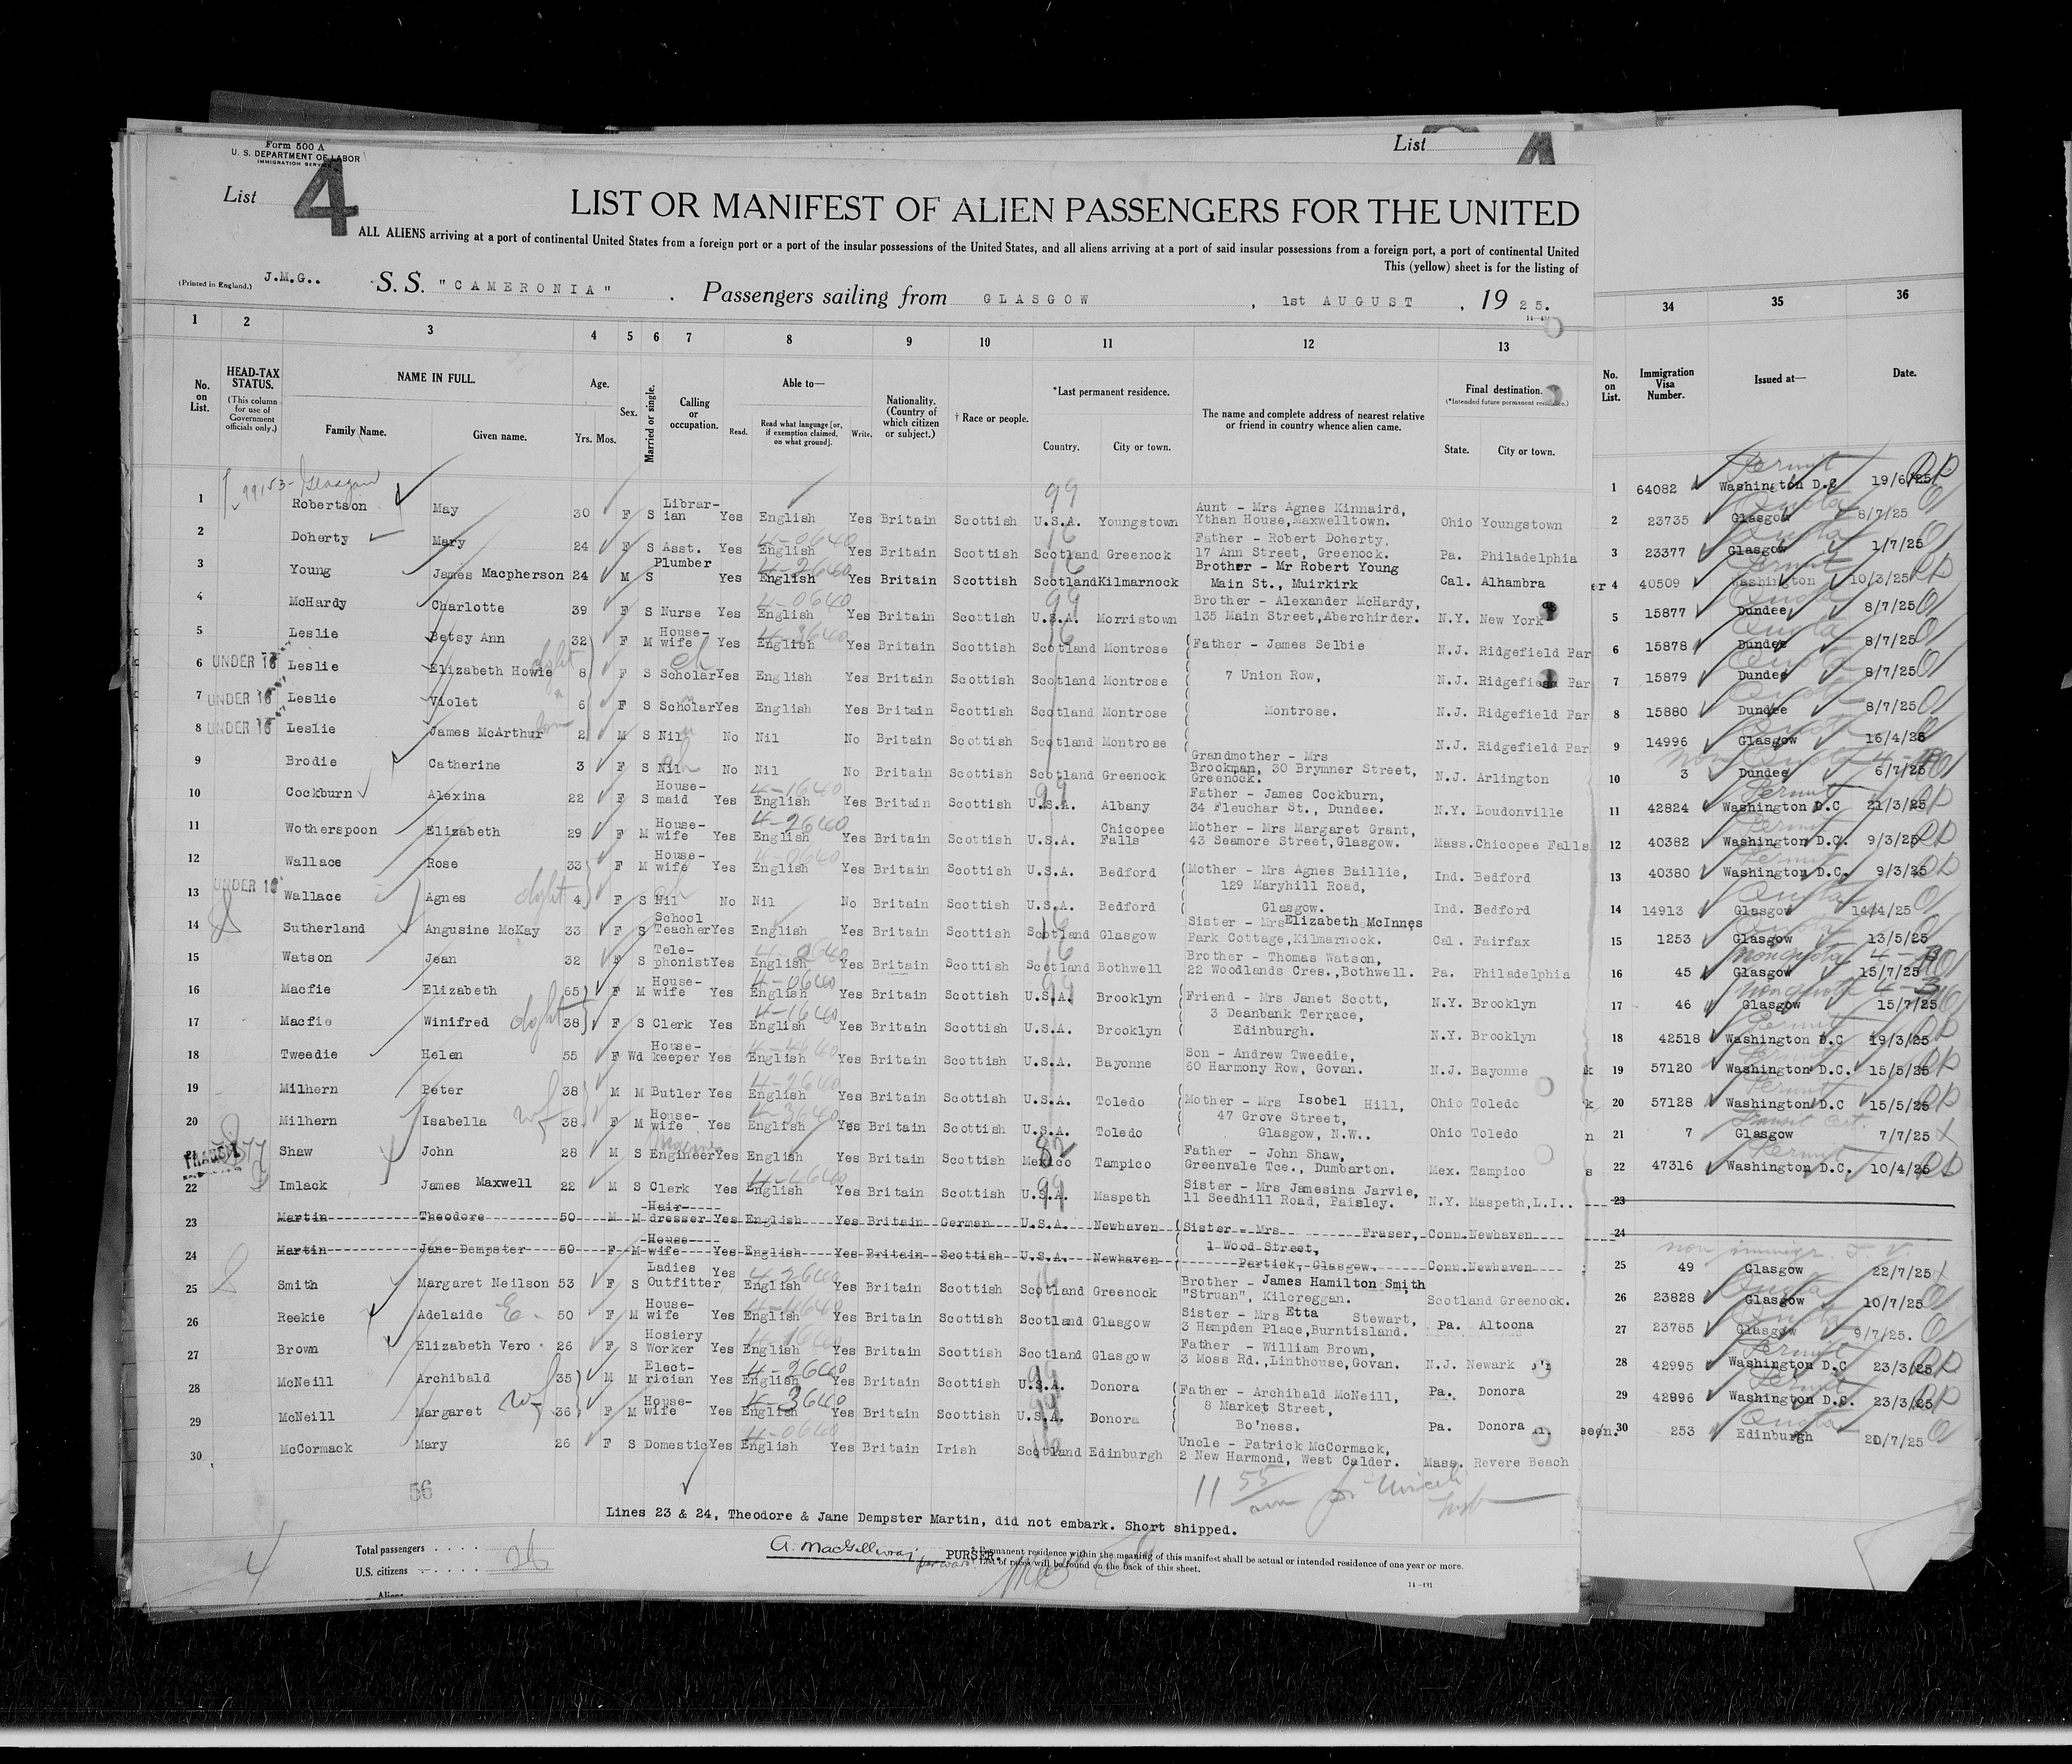 Form 500 A
U. S. DEPARTMENT OF LABOR
IMMIGRATION SERVICE
List 4
List
LIST OR MANIFEST OF ALIEN PASSENGERS FOR THE UNITED
ALL ALIENS arriving at a port of continental United States from a foreign port or a port of the insular possessions of the United States, and all aliens arriving at a port of said insular possessions from a foreign port, a port of continental United
This (yellow) sheet is for the listing of
(Printed in England.) J.M.G.. S. S. "CAMERONIA" . Passengers sailing from GLASGOW , 1st AUGUST , 19 25.
1 2 3 4 5 6 7 8 9 10 11 12 13 34 35 36
No. on List. HEAD-TAX STATUS. (This column for use of Government officials only.) NAME IN FULL. Family Name. Given name. Age. Yrs. Mos. Sex. Married or single. Calling or occupation. Able to— Read. Read what language [or, if exemption claimed, on what ground]. Write. Nationality. (Country of which citizen or subject.) † Race or people. *Last permanent residence. Country. City or town. The name and complete address of nearest relative or friend in country whence alien came. Final destination. (*Intended future permanent residence.) State. City or town. No. on List. Immigration Visa Number. Issued at— Date.
1 Robertson May 30 F S Librarian Yes English Yes Britain Scottish U.S.A. Youngstown Aunt - Mrs Agnes Kinnaird, Ythan House,Maxwelltown. Ohio Youngstown
2 Doherty Mary 24 F S Asst. Yes English Yes Britain Scottish Scotland Greenock Father - Robert Doherty, 17 Ann Street, Greenock. Pa. Philadelphia
3 Young James Macpherson 24 M S Plumber Yes English Yes Britain Scottish Scotland Kilmarnock Brother - Mr Robert Young Main St., Muirkirk Cal. Alhambra
4 McHardy Charlotte 39 F S Nurse Yes English Yes Britain Scottish U.S.A. Morristown Brother - Alexander McHardy, 135 Main Street,Aberchirder. N.Y. New York
5 Leslie Betsy Ann 32 F M House-wife Yes English Yes Britain Scottish Scotland Montrose Father - James Selbie N.J. Ridgefield Par
6 UNDER 16 Leslie Elizabeth Howie 8 F S Scholar Yes English Yes Britain Scottish Scotland Montrose 7 Union Row, N.J. Ridgefield Par
7 UNDER 16 Leslie Violet 6 F S Scholar Yes English Yes Britain Scottish Scotland Montrose Montrose. N.J. Ridgefield Par
8 UNDER 16 Leslie James McArthur 2 M S Nil No Nil No Britain Scottish Scotland Montrose N.J. Ridgefield Par
9 Brodie Catherine 3 F S Nil No Nil No Britain Scottish Scotland Greenock Grandmother - Mrs Brookman, 30 Brymner Street, Greenock. N.J. Arlington
10 Cockburn Alexina 22 F S House-maid Yes English Yes Britain Scottish U.S.A. Albany Father - James Cockburn, 34 Fleuchar St., Dundee. N.Y. Loudonville
11 Wotherspoon Elizabeth 29 F M House-wife Yes English Yes Britain Scottish U.S.A. Chicopee Falls Mother - Mrs Margaret Grant, 43 Seamore Street,Glasgow. Mass. Chicopee Falls
12 Wallace Rose 33 F M House-wife Yes English Yes Britain Scottish U.S.A. Bedford Mother - Mrs Agnes Baillie, 129 Maryhill Road, Ind. Bedford
13 UNDER 16 Wallace Agnes 4 F S Nil No Nil No Britain Scottish U.S.A. Bedford Glasgow. Ind. Bedford
14 Sutherland Angusine McKay 33 F S School Teacher Yes English Yes Britain Scottish Scotland Glasgow Sister - Mrs Elizabeth McInnes Park Cottage,Kilmarnock. Cal. Fairfax
15 Watson Jean 32 F S Tele-phonist Yes English Yes Britain Scottish Scotland Bothwell Brother - Thomas Watson, 22 Woodlands Cres.,Bothwell. Pa. Philadelphia
16 Macfie Elizabeth 65 F M House-wife Yes English Yes Britain Scottish U.S.A. Brooklyn Friend - Mrs Janet Scott, 3 Deanbank Terrace, N.Y. Brooklyn
17 Macfie Winifred 38 F S Clerk Yes English Yes Britain Scottish U.S.A. Brooklyn Edinburgh. N.Y. Brooklyn
18 Tweedie Helen 55 F Wd House-keeper Yes English Yes Britain Scottish U.S.A. Bayonne Son - Andrew Tweedie, 60 Harmony Row, Govan. N.J. Bayonne
19 Milhern Peter 38 M M Butler Yes English Yes Britain Scottish U.S.A. Toledo Mother - Mrs Isobel Hill, 47 Grove Street, Ohio Toledo
20 Milhern Isabella 38 F M House-wife Yes English Yes Britain Scottish U.S.A. Toledo Glasgow, N.W.. Ohio Toledo
Shaw John 28 M S Engineer Yes English Yes Britain Scottish Mexico Tampico Father - John Shaw, Greenvale Tce., Dumbarton. Mex. Tampico
22 Imlack James Maxwell 22 M S Clerk Yes English Yes Britain Scottish U.S.A. Maspeth Sister - Mrs Jamesina Jarvie, 11 Seedhill Road, Paisley. N.Y. Maspeth,L.I..
23 Martin Theodore 50 M M Hair-dresser Yes English Yes Britain German U.S.A. Newhaven Sister - Mrs Fraser, 1 Wood Street, Conn. Newhaven
24 Martin Jane Dempster 50 F M House-wife Yes English Yes Britain Scottish U.S.A. Newhaven Partick, Glasgow. Conn. Newhaven
25 Smith Margaret Neilson 53 F S Ladies Outfitter Yes English Yes Britain Scottish Scotland Greenock Brother - James Hamilton Smith "Struan", Kilcreggan. Scotland Greenock.
26 Reekie Adelaide E. 50 F M House-wife Yes English Yes Britain Scottish Scotland Glasgow Sister - Mrs Etta Stewart, 3 Hampden Place,Burntisland. Pa. Altoona
27 Brown Elizabeth Vero 26 F S Hosiery Worker Yes English Yes Britain Scottish Scotland Glasgow Father - William Brown, 3 Moss Rd.,Linthouse,Govan. N.J. Newark
28 McNeill Archibald 35 M M Elect-rician Yes English Yes Britain Scottish U.S.A. Donora Father - Archibald McNeill, 8 Market Street, Pa. Donora
29 McNeill Margaret 36 F M House-wife Yes English Yes Britain Scottish U.S.A. Donora Bo'ness. Pa. Donora
30 McCormack Mary 26 F S Domestic Yes English Yes Britain Irish Scotland Edinburgh Uncle - Patrick McCormack, 2 New Harmond, West Calder. Mass. Revere Beach
56
Lines 23 & 24, Theodore & Jane Dempster Martin, did not embark. Short shipped.
PURSER.
Total passengers . . . .
U.S. citizens . . . . .
Aliens
* Permanent residence within the meaning of this manifest shall be actual or intended residence of one year or more.
† List of races will be found on the back of this sheet.
14—431
1 64082 Permit Washington D.C 19/6/25
2 23735 Quota Glasgow 8/7/25
3 23377 Quota Glasgow 1/7/25
4 40509 Permit Washington 10/3/25
5 15877 Quota Dundee 8/7/25
6 15878 Quota Dundee 8/7/25
7 15879 Quota Dundee 8/7/25
8 15880 Quota Dundee 8/7/25
9 14996 Quota Glasgow 16/4/25
10 3 Non Quota Dundee 6/7/25
11 42824 Permit Washington D.C 21/3/25
12 40382 Permit Washington D.C. 9/3/25
13 40380 Permit Washington D.C. 9/3/25
14 14913 Quota Glasgow 14/4/25
15 1253 Quota Glasgow 13/5/25
16 45 Nonquota Glasgow 15/7/25
17 46 Nonquota Glasgow 15/7/25
18 42518 Permit Washington D.C 19/3/25
19 57120 Permit Washington D.C. 15/5/25
20 57128 Permit Washington D.C 15/5/25
21 7 Transit Cert. Glasgow 7/7/25
22 47316 Permit Washington D.C. 10/4/25
23
24
25 49 non immigr. T. V. Glasgow 22/7/25
26 23828 Quota Glasgow 10/7/25
27 23785 Quota Glasgow 9/7/25.
28 42995 Permit Washington D.C 23/3/25
29 42996 Permit Washington D.C. 23/3/25
30 253 Quota Edinburgh 20/7/25